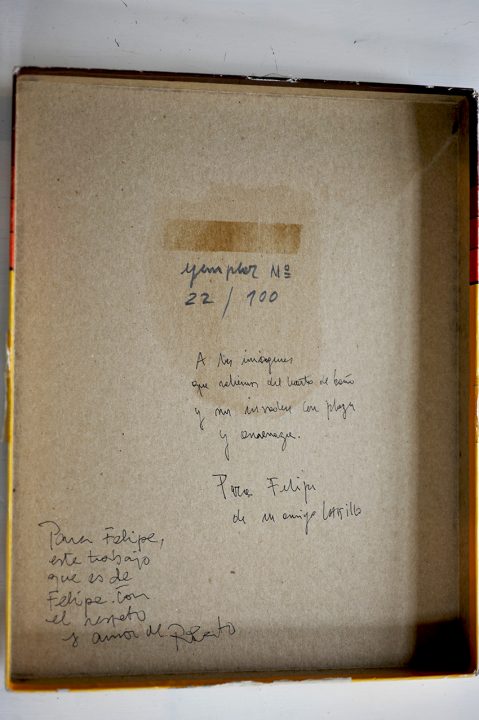 ejemplar Nº
22 / 100
A las imágenes
que salimos del cuarto de baño
y nos invaden con
y
Para Felipe
de su amigo
Para Felipe,
este trabajo
que es de
Felipe. Con
el respeto
y amor de